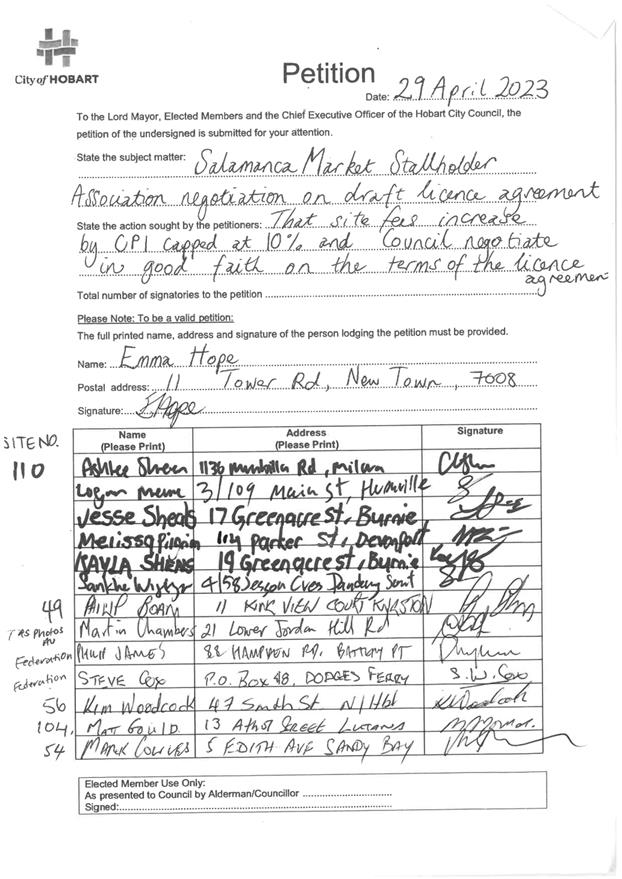 City of HOBART
Petition
Date: 29 April 2023
To the Lord Mayor, Elected Members and the Chief Executive Officer of the Hobart City Council, the
petition of the undersigned is submitted for your attention.
State the subject matter: Salamanca Market Stallholder
Association negotiation on draft licence agreement
State the action sought by the petitioners: That site fees increase
by CPI capped at 10% and Council negotiate
in good faith on the terms of the licence
agreement
Total number of signatories to the petition
Please Note: To be a valid petition:
The full printed name, address and signature of the person lodging the petition must be provided.
Name: Emma Hope
Postal address: 11 Tower Rd, New Town, 7008
Signature: EHope
SITE NO. Name Address Signature
(Please Print) (Please Print)
110 Ashlee Rd,
Logan 3/109 Main St, Huonville
Jesse 17 Greenacre St, Burnie
Melissa Pilgrim Parker St, Devonport
KAYLA 19 Greenacre st, Burnie
4/58
49 PHILIP BOAM 11 KING VIEW COURT KINGSTON
TAS Photos
AU Martin Chambers 21 Lower Jordan Hill Rd
Federation PHILIP JAMES 88 HAMPDEN RD, BATTERY PT
Federation STEVE COX P.O. BOX 48, DODGES FERRY S.W. Cox
56 Kim Woodcock 47 Smith St. N/Hbt
104. MATT GOULD 13 STREET
54 MARK 5 EDITH AVE SANDY BAY
Elected Member Use Only:
As presented to Council by Alderman/Councillor
Signed: